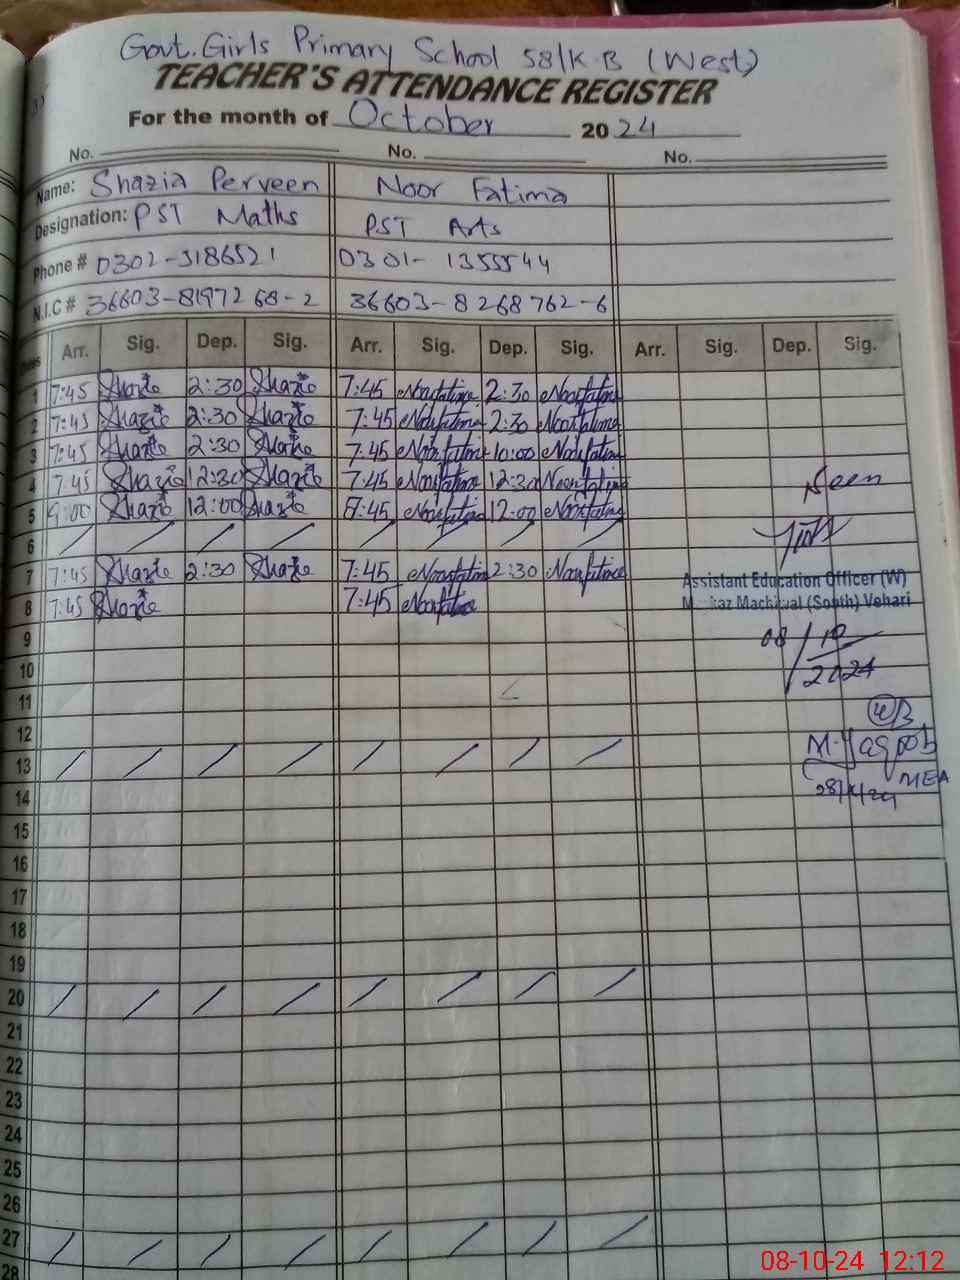 Govt. Girls Primary School 58/K.B (West)
TEACHER'S ATTENDANCE REGISTER
For the month of October 2024
No. No. No.
Name: Shazia Perveen Noor Fatima
Designation: PST Maths PST Arts
Phone # 0302-3186521 0301-1355544
N.I.C # 36603-8197268-2 36603-8268762-6
Arr. Sig. Dep. Sig. Arr. Sig. Dep. Sig. Arr. Sig. Dep. Sig.
1 7:45 Shazia 2:30 Shazia 7:45 Noorfatima 2:30 Noorfatima
2 7:45 Shazia 2:30 Shazia 7:45 Noorfatima 2:30 Noorfatima
3 7:45 Shazia 2:30 Shazia 7:45 Noorfatima 10:00 Noorfatima
4 7:45 Shazia 12:30 Shazia 7:45 Noorfatima 12:30 Noorfatima
Seen
5 9:00 Shazia 12:00 Shazia 8:45 Noorfatima 12:00 Noorfatima
6 / / / / / / / /
7 7:45 Shazia 2:30 Shazia 7:45 Noorfatima 2:30 Noorfatima
Assistant Education Officer (W)
8 7:45 Shazia 7:45 Noorfatima
Markaz Machiwal (South) Vehari
9
08/10/2024
10
11
12
13 / / / / / / / /
M. Yaqoob
MEA
14
15
16
17
18
19
20 / / / / / / / /
21
22
23
24
25
26
27 / / / / / / / /
28
08-10-24 12:12